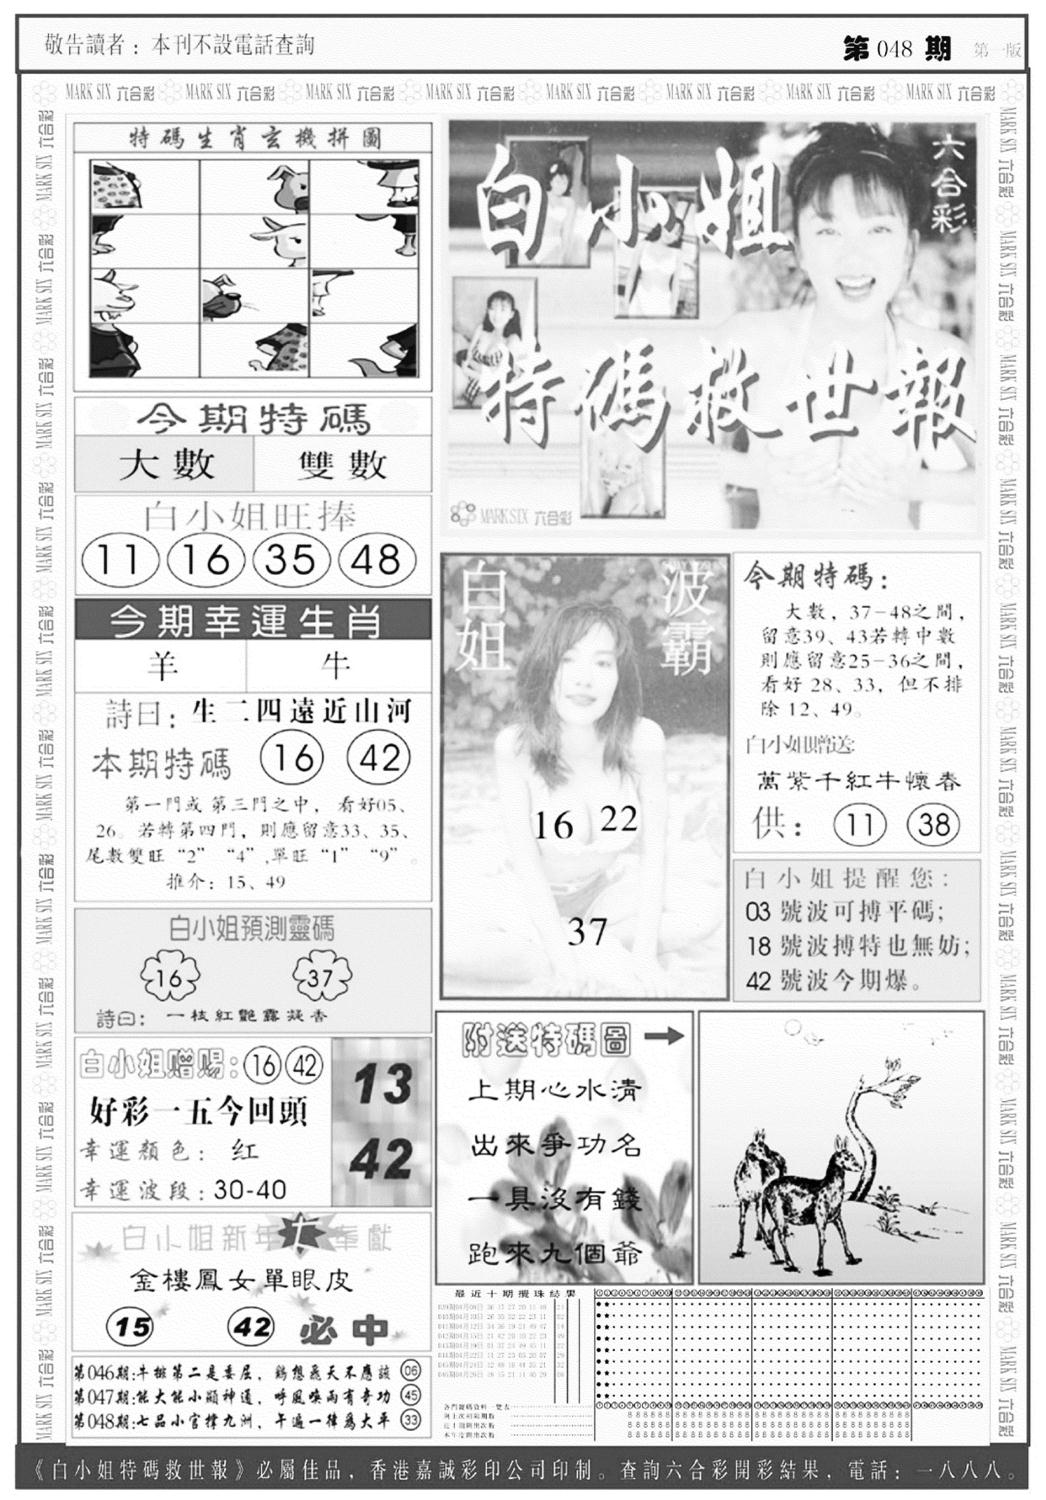 敬告讀者：本刊不設電話查詢
第 048 期 第一版
MARK SIX 六合彩 MARK SIX 六合彩 MARK SIX 六合彩 MARK SIX 六合彩 MARK SIX 六合彩 MARK SIX 六合彩 MARK SIX 六合彩 MARK SIX 六合彩
特碼生肖玄機拼圖
今期特碼
大數 雙數
白小姐旺捧
11 16 35 48
今期幸運生肖
羊 牛
詩曰：生二四遠近山河
本期特碼 16 42
第一門或第三門之中，看好05、
26。若轉第四門，則應留意33、35、
尾數雙旺“2” “4”,單旺“1” “9”。
推介：15、49
白小姐預測靈碼
16 37
詩曰：一枝紅艷露凝香
白小姐贈賜：16 42
好彩一五今回頭
幸運顏色：红
幸運波段：30-40
13
42
白小姐新年大奉獻
金樓鳳女單眼皮
15 42 必中
第046期:牛排第二是委屈，鷄想飛天不應該 06
第047期:能大能小顯神通，呼風喚雨有奇功 45
第048期:七品小官撑九洲，午遍一律爲太平 33
白小姐
六合彩
特碼救世報
MARK SIX 六合彩
白姐
波霸
16 22
37
今期特碼：
大數，37-48之間，
留意39、43若轉中數
則應留意25-36之間，
看好 28、33，但不排
除 12、49。
白小姐贈送:
萬紫千紅牛懷春
供：11 38
白小姐提醒您：
03 號波可搏平碼；
18 號波搏特也無妨；
42 號波今期爆。
附送特碼圖
上期心水清
出來爭功名
一具沒有錢
跑來九個爺
最近十期攪珠結果
《白小姐特碼救世報》必屬佳品，香港嘉誠彩印公司印制。查詢六合彩開彩結果，電話：一八八八。